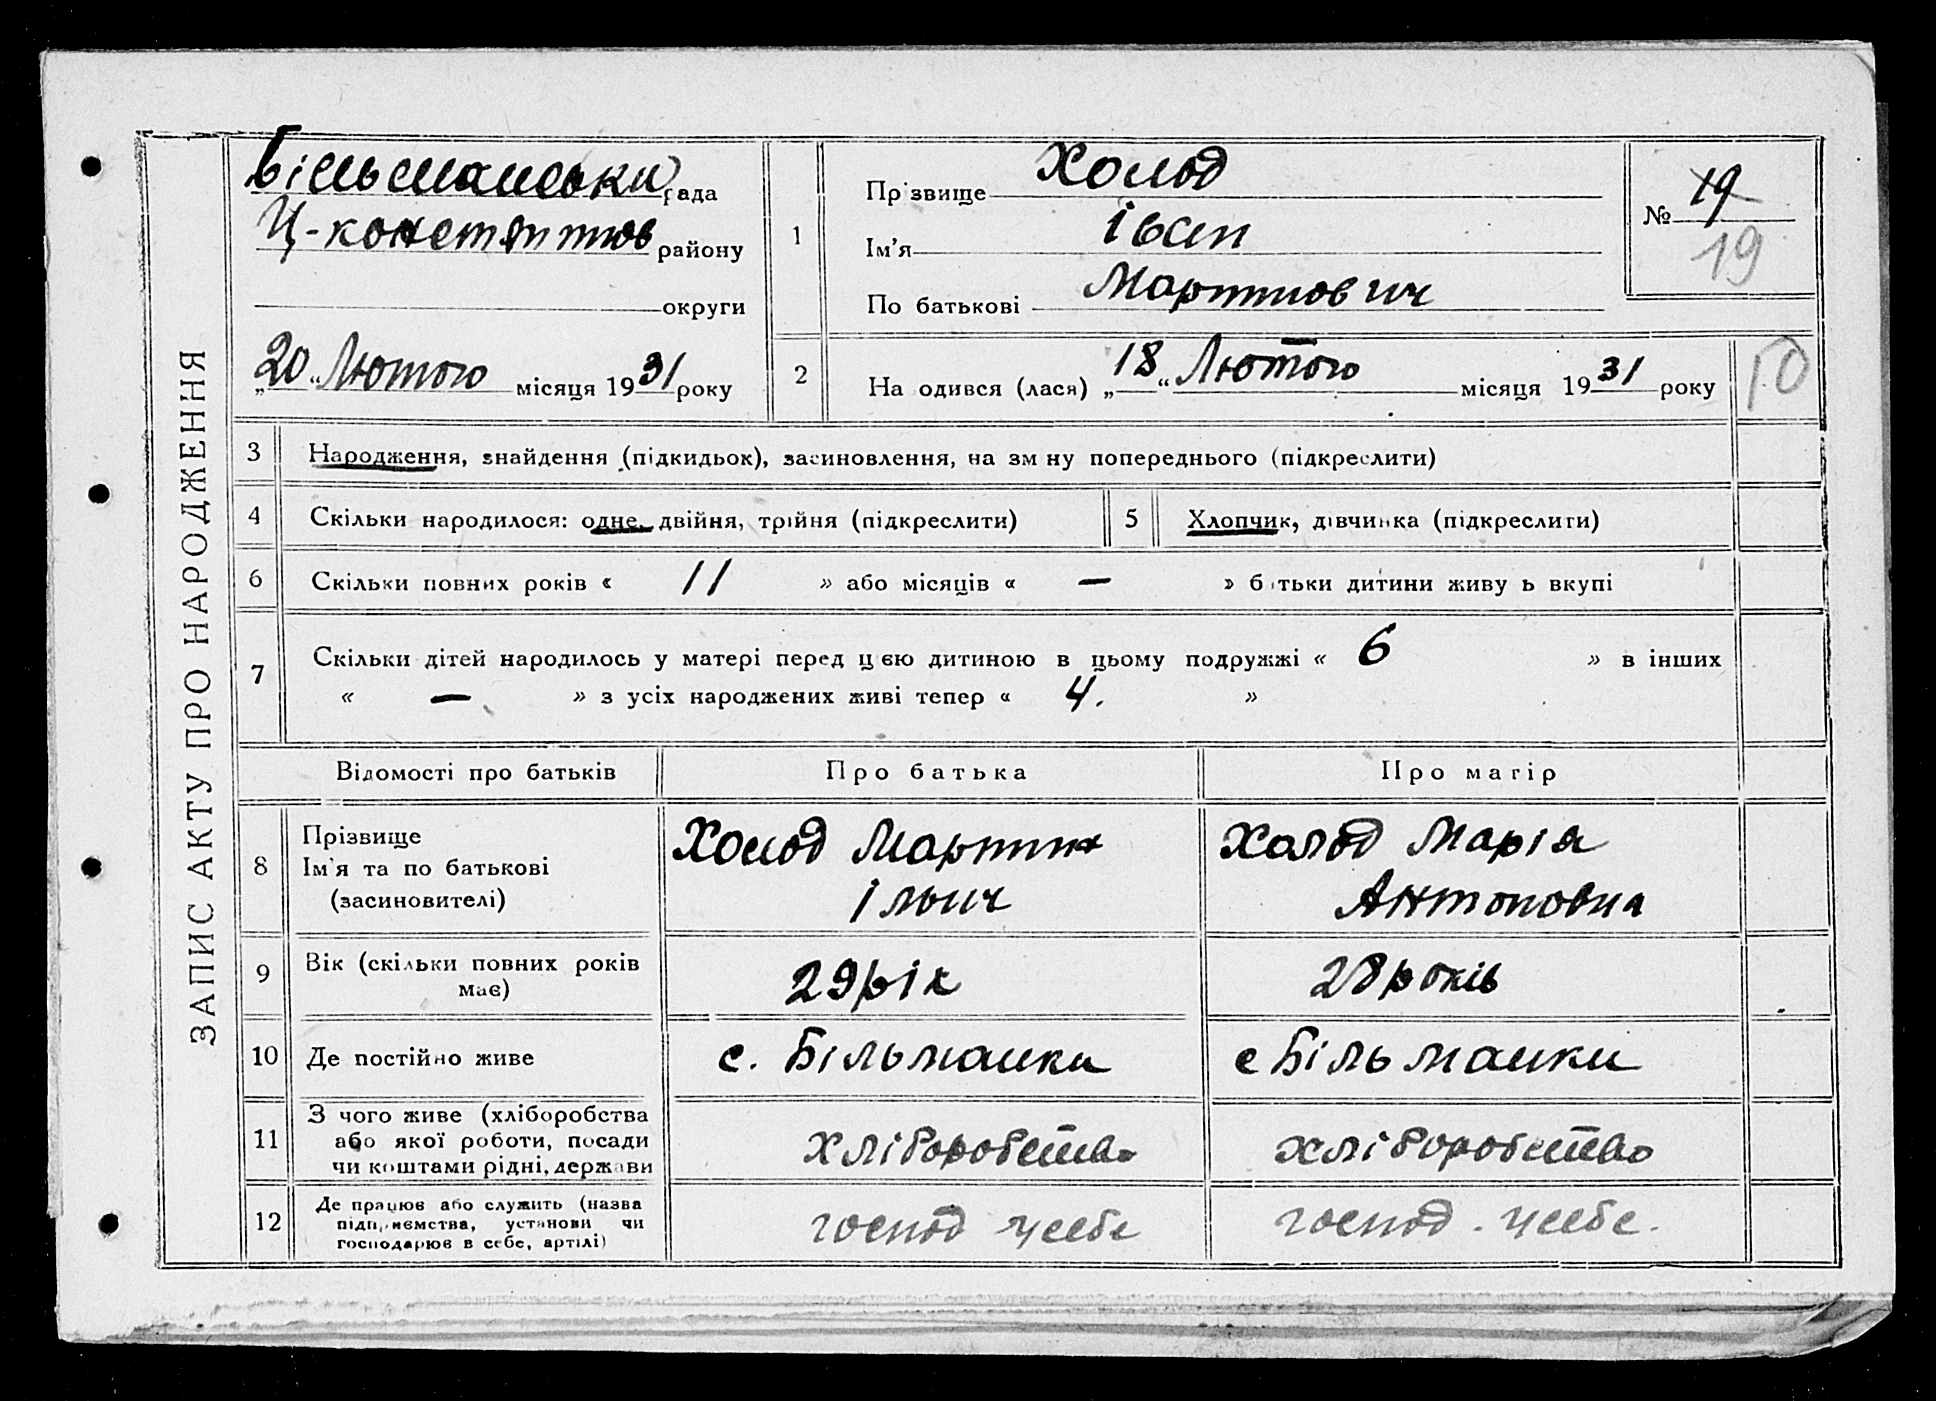 ЗАПИС АКТУ ПРО НАРОДЖЕННЯ
Більманськи рада
Ц-констянтнов району
округи
„20“ Лютого місяця 1931 року
1
Прізвище Холод
Ім’я Іван
По батькові Мартинович
№ 19
19
2
На одився (лася) „18“ Лютого місяця 1931 року
10
3 Народження, знайдення (підкидьок), засиновлення, на зм ну попереднього (підкреслити)
4 Скільки народилося: одне, двійня, трійня (підкреслити)
5 Хлопчик, дівчинка (підкреслити)
6 Скільки повних років « 11 » або місяців « — » б тьки дитини живу ь вкупі
7 Скільки дітей народилось у матері перед цією дитиною в цьому подружжі « 6 » в інших
« — » з усіх народжених живі тепер « 4. »
Відомості про батьків Про батька Про матір
8 Прізвище
Ім’я та по батькові
(засиновителі)
Холод Мартин
Ільич
Холод Марія
Антоновна
9 Вік (скільки повних років
має)
29 рік
28 років
10 Де постійно живе
с. Більманки
с Більманки
11 З чого живе (хліборобства
або якої роботи, посади
чи коштами рідні, держави
хліборобство
хліборобство
12 Де працює або служить (назва
підприємства, установи чи
господарює в себе, артілі)
господ. у себе
господ. у себе.